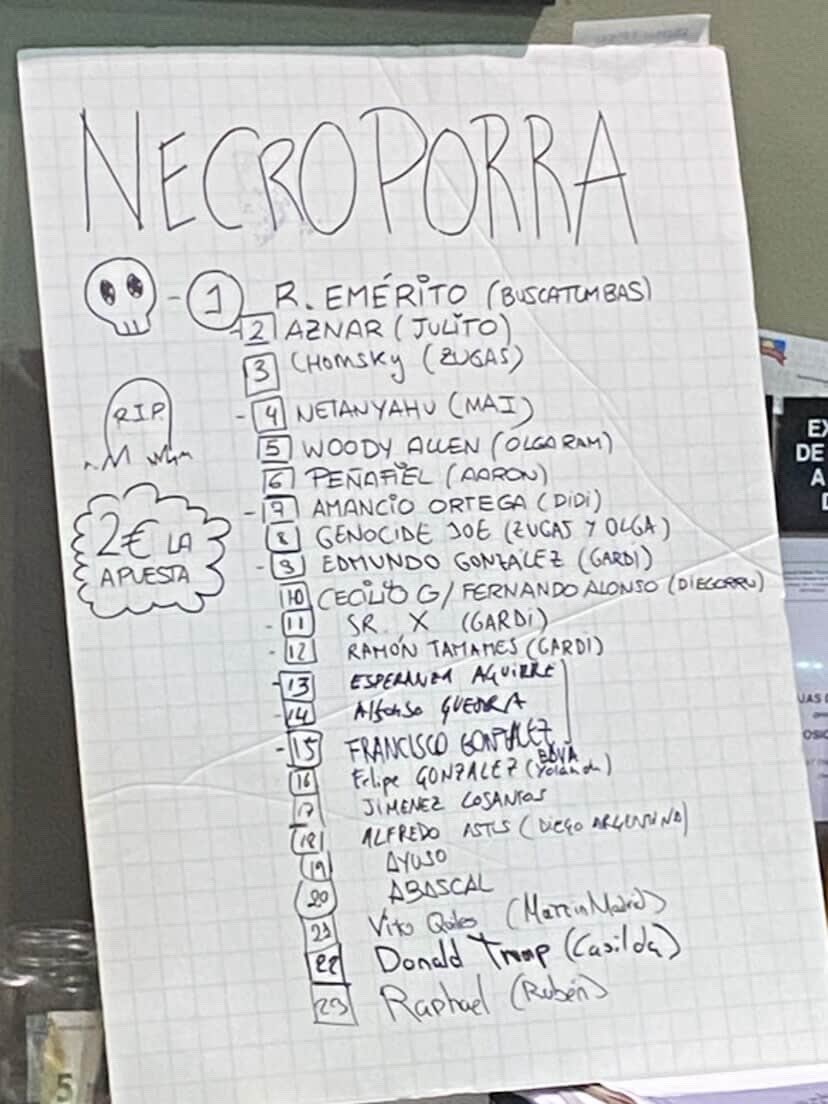 NECROPORRA
1 R. EMÉRITO (BUSCATUMBAS)
2 AZNAR (JULITO)
3 CHOMSKY (ZUGAS)
R.I.P.
4 NETANYAHU (MAI)
5 WOODY ALLEN (OLGA RAM)
6 PEÑAFIEL (AARON)
7 AMANCIO ORTEGA (DIDI)
2€ LA
APUESTA
8 GENOCIDE JOE (ZUGAS Y OLGA)
9 EDMUNDO GONZÁLEZ (GARDI)
10 CECILIO G/ FERNANDO ALONSO (DIEGORRU)
11 SR. X (GARDI)
12 RAMÓN TAMAMES (GARDI)
13 ESPERANZA AGUIRRE
14 Alfonso GUERRA
15 FRANCISCO GONZALEZ BBVA
16 Felipe GONZALEZ (Yolanda)
17 JIMENEZ LOSANTOS
18 ALFREDO ASTIS (DIEGO ARGENTINA)
19 AYUSO
20 ABASCAL
21 Vito Quiles (Martin Madrid)
22 Donald Trump (Casilda)
23 Raphael (Rubén)
5
EX
DE
A